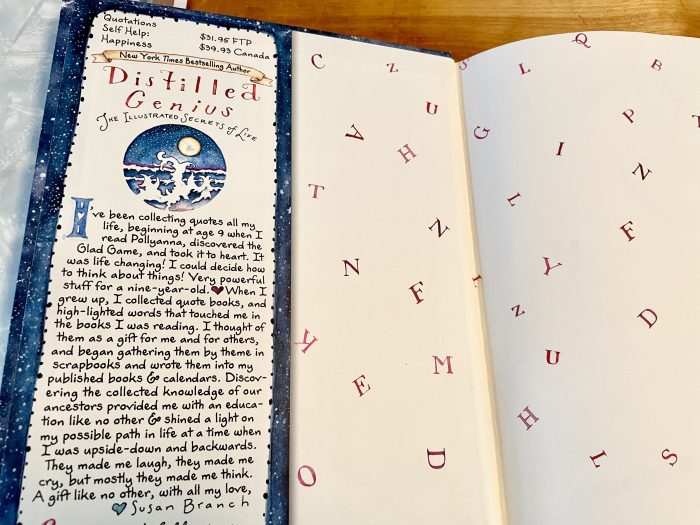 Quotations
Self Help:
Happiness
$31.95 FTP
$39.93 Canada
New York Times Bestselling Author
Distilled
Genius
The Illustrated Secrets of Life
I've been collecting quotes all my
life, beginning at age 9 when I
read Pollyanna, discovered the
Glad Game, and took it to heart. It
was life changing! I could decide how
to think about things! Very powerful
stuff for a nine-year-old. ♥ When I
grew up, I collected quote books, and
high-lighted words that touched me in
the books I was reading. I thought of
them as a gift for me and for others,
and began gathering them by theme in
scrapbooks and wrote them into my
published books & calendars. Discov-
ering the collected knowledge of our
ancestors provided me with an educa-
tion like no other & shined a light on
my possible path in life at a time when
I was upside-down and backwards.
They made me laugh, they made me
cry, but mostly they made me think.
A gift like no other, with all my love,
♥ Susan Branch
C Z
U
A
H
T
N
N
F
K
M
E
D
O
S L Q B
G I P
L N
F
Y
Z D
U
H
L S